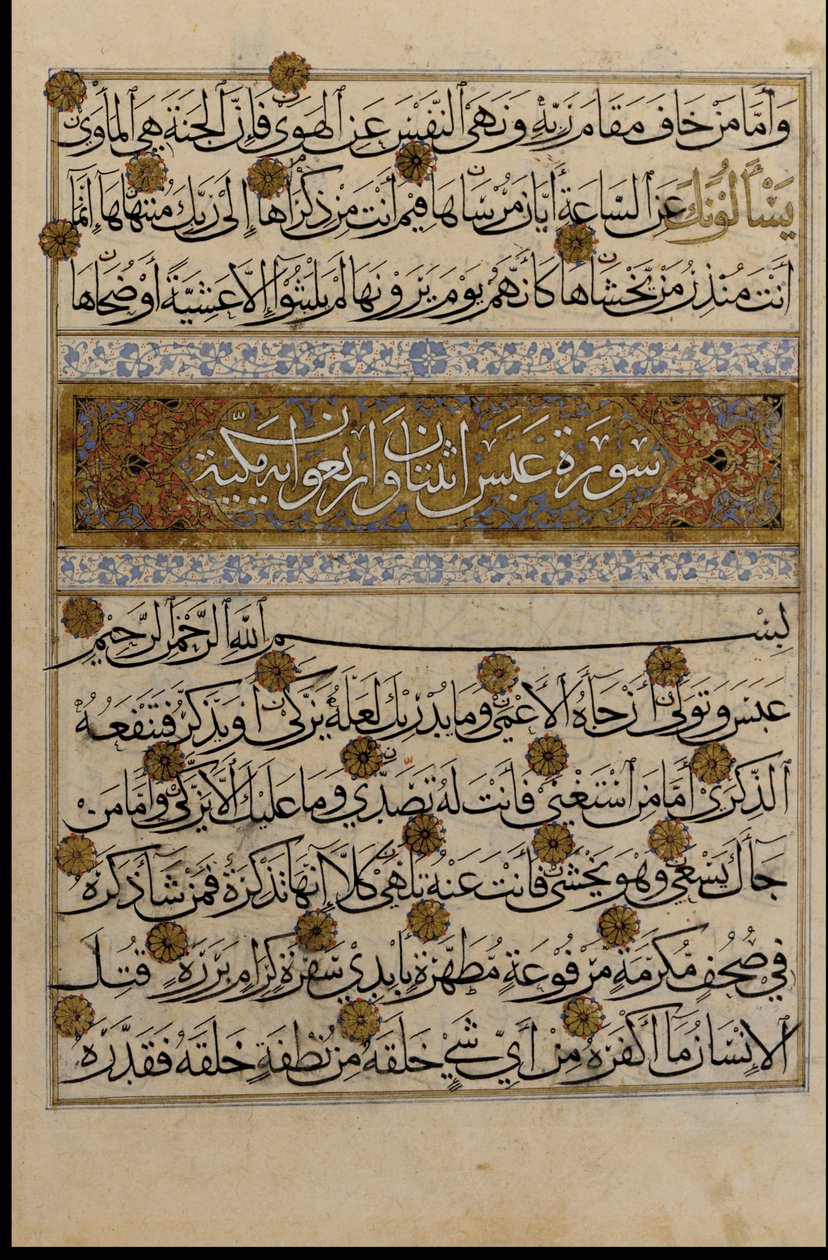 وَأَمَّا مَنْ خَافَ مَقَامَ رَبِّهِ وَنَهَى ٱلنَّفْسَ عَنِ ٱلْهَوَىٰ فَإِنَّ ٱلْجَنَّةَ هِيَ ٱلْمَأْوَىٰ
يَسْأَلُونَكَ عَنِ ٱلسَّاعَةِ أَيَّانَ مُرْسَاهَا فِيمَ أَنْتَ مِنْ ذِكْرَاهَا إِلَىٰ رَبِّكَ مُنْتَهَاهَا إِنَّمَا
أَنْتَ مُنْذِرُ مَنْ يَخْشَاهَا كَأَنَّهُمْ يَوْمَ يَرَوْنَهَا لَمْ يَلْبَثُوٓا إِلَّا عَشِيَّةً أَوْ ضُحَاهَا
سورة عبس اثنتان واربعون اية مكية
بِسْمِ ٱللَّهِ ٱلرَّحْمَٰنِ ٱلرَّحِيمِ
عَبَسَ وَتَوَلَّىٰ أَنْ جَآءَهُ ٱلْأَعْمَىٰ وَمَا يُدْرِيكَ لَعَلَّهُ يَزَّكَّىٰ أَوْ يَذَّكَّرُ فَتَنْفَعَهُ
ٱلذِّكْرَىٰ أَمَّا مَنِ ٱسْتَغْنَىٰ فَأَنْتَ لَهُ تَصَدَّىٰ وَمَا عَلَيْكَ أَلَّا يَزَّكَّىٰ وَأَمَّا مَنْ
جَآءَكَ يَسْعَىٰ وَهُوَ يَخْشَىٰ فَأَنْتَ عَنْهُ تَلَهَّىٰ كَلَّآ إِنَّهَا تَذْكِرَةٌ فَمَنْ شَآءَ ذَكَرَهُ
فِي صُحُفٍ مُكَرَّمَةٍ مَرْفُوعَةٍ مُطَهَّرَةٍ بِأَيْدِي سَفَرَةٍ كِرَامٍ بَرَرَةٍ قُتِلَ
ٱلْإِنْسَانُ مَآ أَكْفَرَهُ مِنْ أَيِّ شَيْءٍ خَلَقَهُ مِنْ نُطْفَةٍ خَلَقَهُ فَقَدَّرَهُ